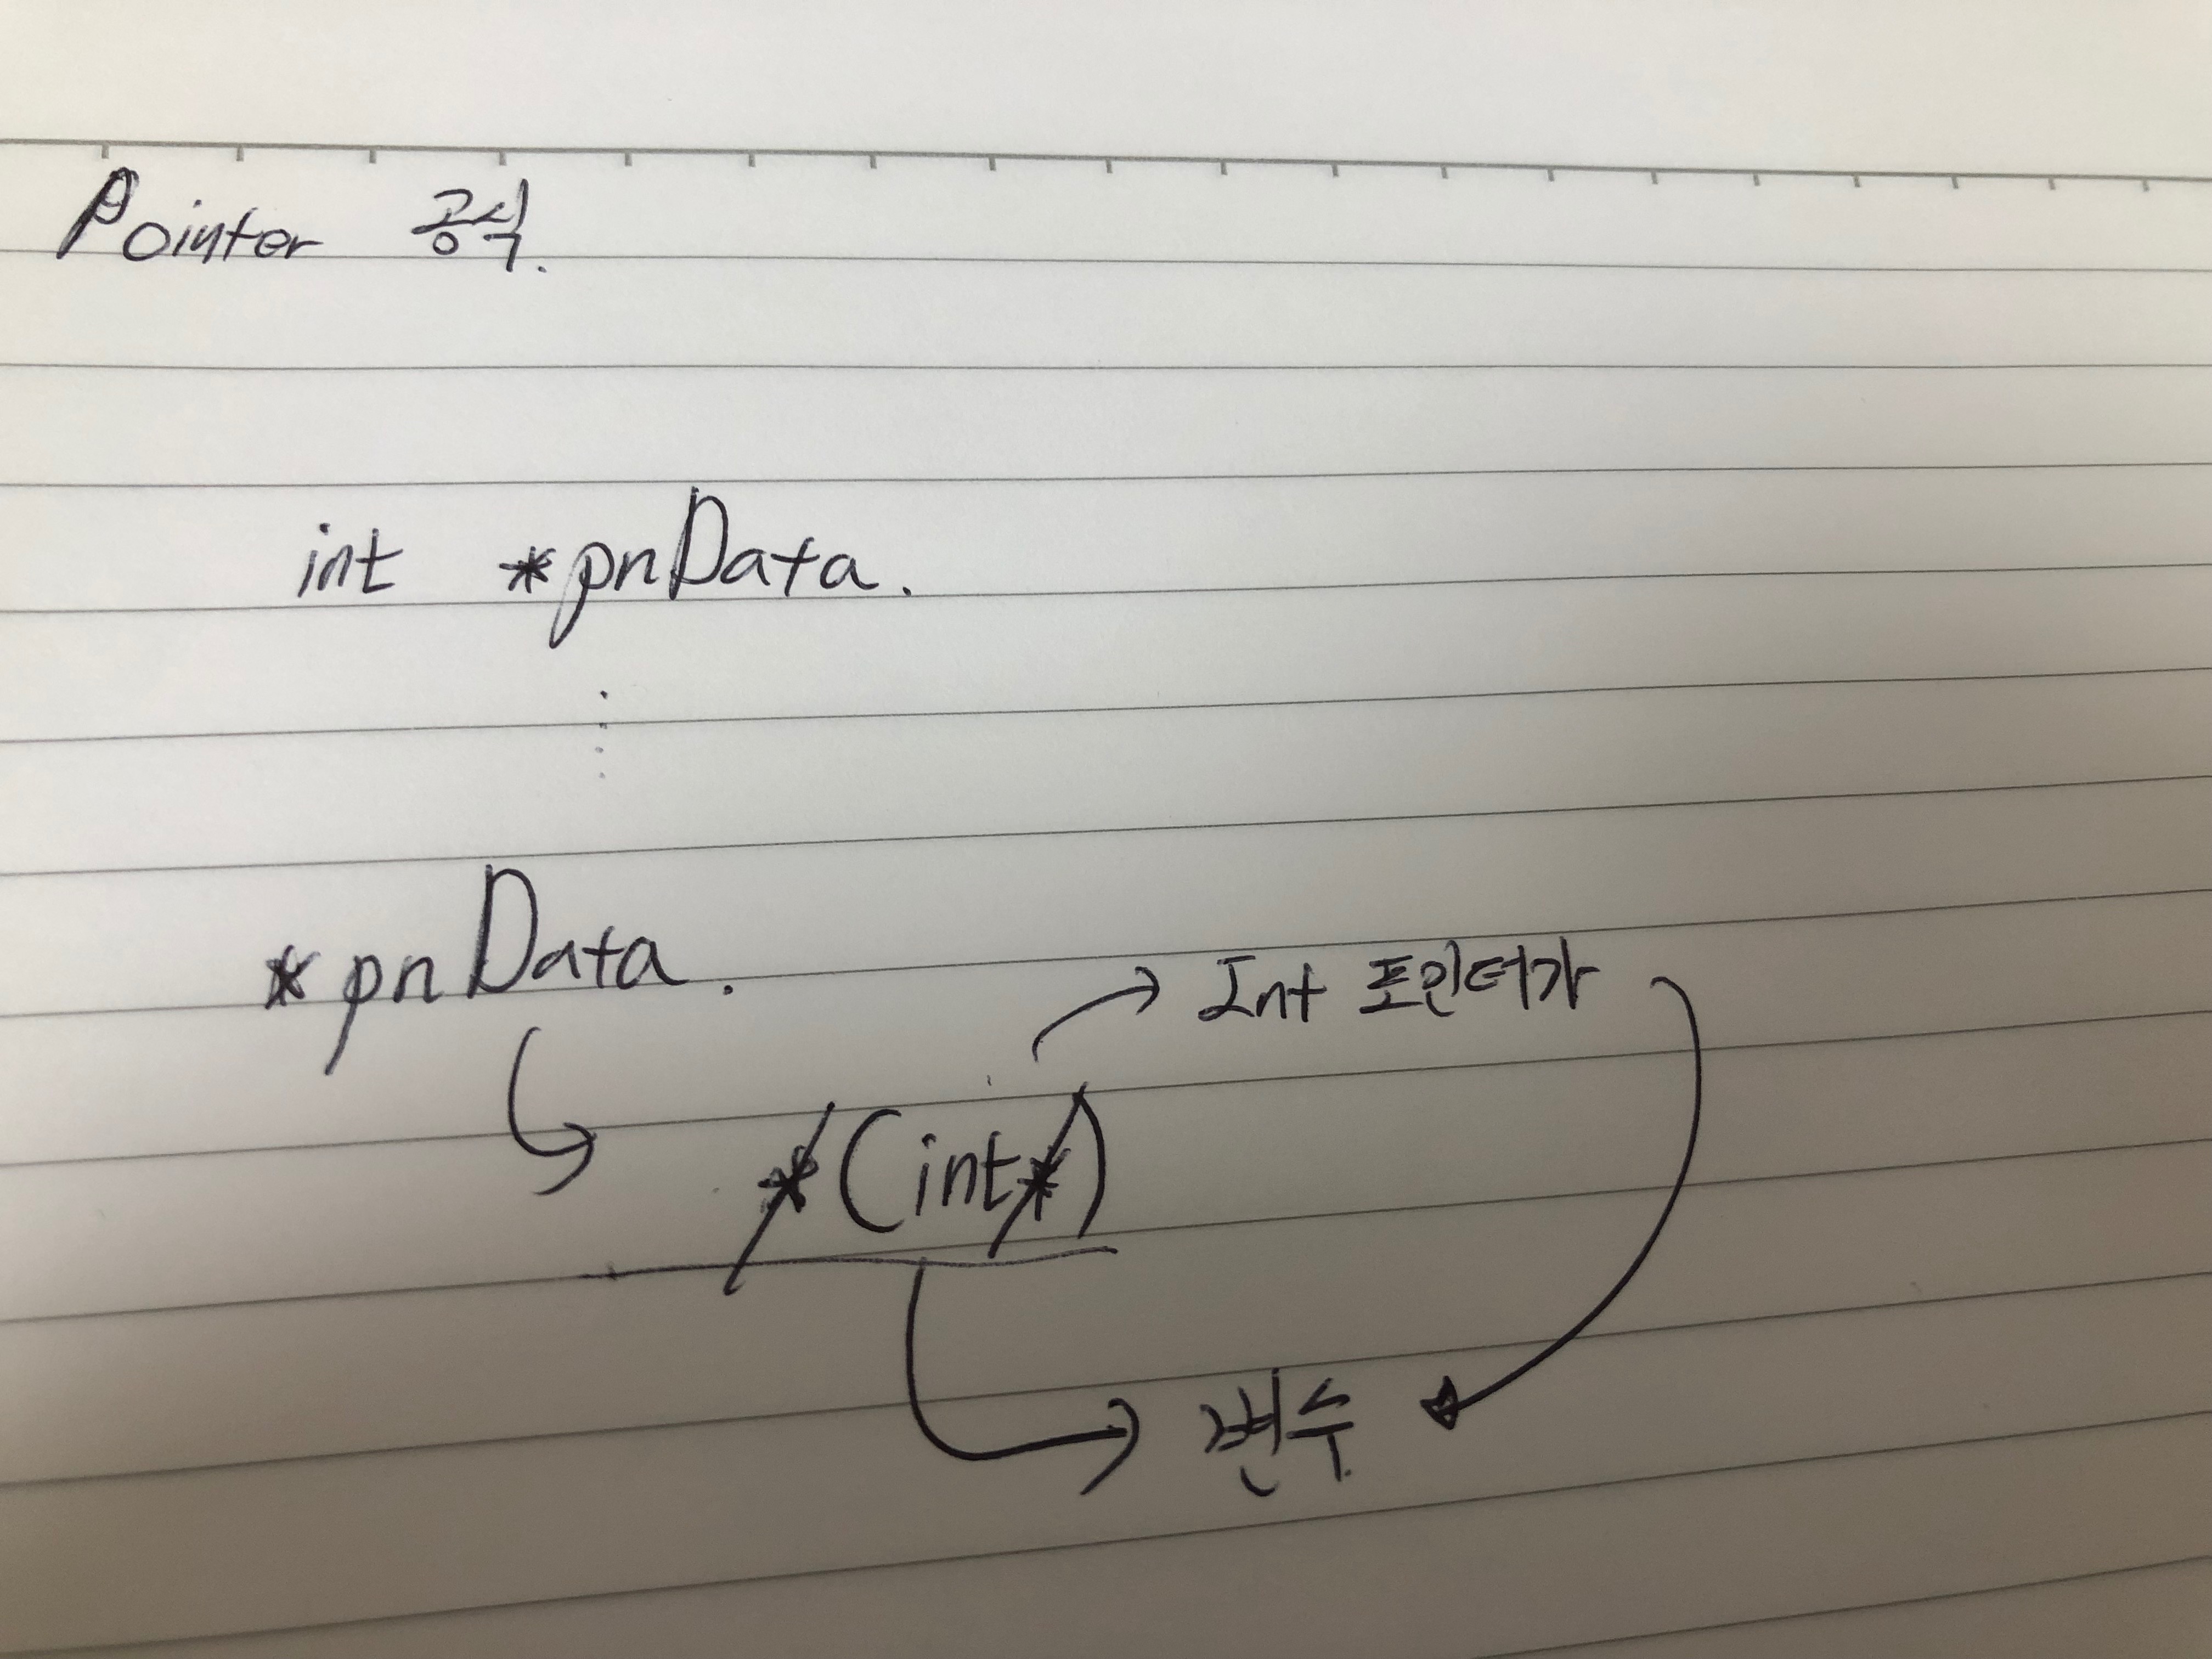 Pointer 공식.
int *pnData.
*pnData.
Int 포인터가
*(int*)
변수